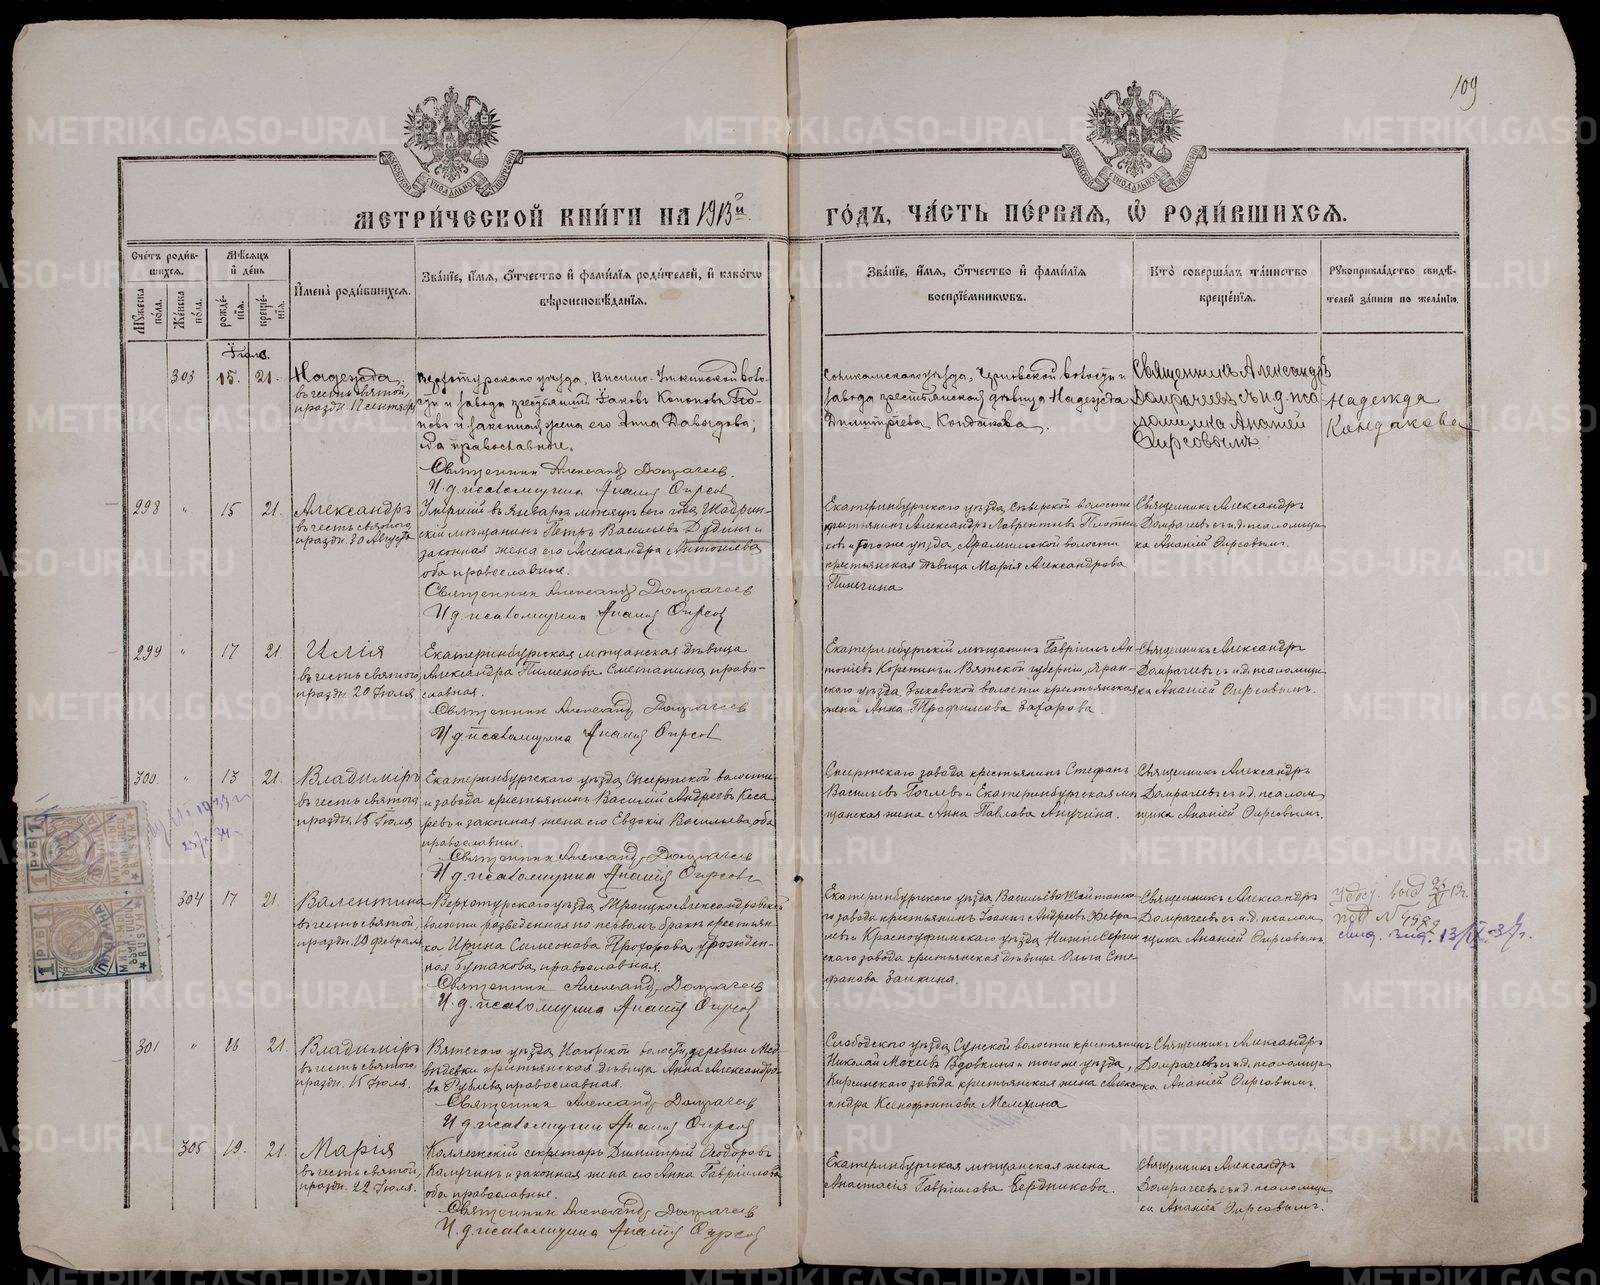 109
МЕТРИ́ЧЕСКОЙ КНИ́ГИ НА 1913й
ГО́ДЪ, ЧА́СТЬ ПЕ́РВАЯ, Ѡ҆ РОДИ́ВШИХСѦ.
Сче́тъ роди́в-
шихсѧ.
Мꙋ́жеска по́ла.
Же́нска по́ла.
Мѣ́сѧцъ
и҆ де́нь
рожде́нїѧ.
креще́нїѧ.
И҆мена̀ роди́вшихсѧ.
Зва́нїе, и҆́мѧ, ѻ҆́тчество и҆ фами́лїѧ роди́телей, и҆ како́гѡ
вѣроисповѣ́данїѧ.
Зва́нїе, и҆́мѧ, ѻ҆́тчество и҆ фами́лїѧ
воспрїе́мникѡвъ.
Кто̀ соверша́лъ та́инство
креще́нїѧ.
Рꙋкоприкла́дство свидѣ́-
телей за́писи по жела́нїю.
Іюль.
303 15. 21. Надежда
въ честь святой,
праздн. 17 сентября
Верхотурскаго уѣзда, Висимо-Уткинской воло-
сти и завода крестьянинъ Іаковъ Кононовъ По-
повъ и законная жена его Анна Давыдова,
оба православные.
Священникъ Александръ Домрачеевъ
И. д. псаломщика Ананій Фирсовъ
Соликамскаго уѣзда, волости и
завода крестьянская дѣвица Надежда
Димитріева Кондакова.
Священникъ Александръ
Домрачеевъ съ и.д. пса
ломщика Ананіей
Фирсовымъ.
Надежда
Кандакова
298 " 15 21. Александръ
въ честь святого
праздн. 30 Августа
Умершій въ Январѣ мѣсяцѣ сего года Шадрин-
скій мѣщанинъ Петръ Васильевъ Дудинъ и
законная жена его Александра Антоніева
оба православные.
Священникъ Александръ Домрачеевъ
И. д. псаломщика Ананій Фирсовъ
Екатеринбургскаго уѣзда, волости
крестьянинъ Александръ Лаврентьевъ Плотни
ковъ и того же уѣзда, Арамильской волости
крестьянская дѣвица Марія Александрова
Пинегина
Священникъ Александръ
Домрачеевъ съ и.д. псаломщи
ка Ананіей Фирсовымъ.
299 " 17 21 Илія
въ честь святого,
праздн. 20 Іюля
Екатеринбургская мѣщанская дѣвица
Александра Пименова Сметанина, право-
славная.
Священникъ Александръ Домрачеевъ
И. д. псаломщика Ананій Фирсовъ
Екатеринбургскій мѣщанинъ Гавріилъ Ан
тоніевъ Корепинъ и Вятской губерніи, Яран-
скаго уѣзда, Зыковской волости крестьянская
жена Анна Трофимова Захарова
Священникъ Александръ
Домрачеевъ съ и.д. псаломщи
ка Ананіей Фирсовымъ.
300. " 13 21. Владиміръ
въ честь святого
праздн. 15 Іюля
Екатеринбургскаго уѣзда Сысертской волости
и завода крестьянинъ Василій Андреевъ Кеса
ревъ и законная жена его Евдокія Васильева, оба
православные.
Священникъ Александръ Домрачеевъ
И. д. псаломщика Ананій Фирсовъ
Сысертскаго завода крестьянинъ Стефанъ
Васильевъ Гоглевъ и Екатеринбургская мѣ
щанская жена Анна Павлова Анучина.
Священникъ Александръ
Домрачеевъ съ и.д. псалом
щика Ананіей Фирсовымъ.
1 РУБ 1
1 РУБ 1
304 17 21. Валентина
въ честь святой,
праздн. 10 февраля
Верхотурскаго уѣзда, Троицко-Александровской
волости разведенная по первомъ бракѣ крестьян
ка Ирина Симеонова Прохорова, урожден-
ная Бутакова, православная.
Священникъ Александръ Домрачеевъ
И. д. псаломщика Ананій Фирсовъ
Екатеринбургскаго уѣзда Васильево-Шайтанска
го завода крестьянинъ Іоаннъ Андреевъ Февра
левъ и Красноуфимскаго уѣзда Нижнесергин
скаго завода крестьянская дѣвица Ольга Сте-
фанова Заикина.
Священникъ Александръ
Домрачеевъ съ и.д. псалом
щика Ананіей Фирсовымъ.
301 " 16 21. Владиміръ
въ честь святого,
праздн. 15 Іюля.
Вятскаго уѣзда Нагорской волости, деревни Мед-
вѣдевки крестьянская дѣвица Анна Александро-
ва Рублева, православная.
Священникъ Александръ Домрачеевъ
И. д. псаломщика Ананій Фирсовъ
Слободскаго уѣзда Сунской волости крестьянинъ
Николай Мокеевъ Вдовкинъ и того же уѣзда,
Кирсинскаго завода крестьянская жена Алекс
андра Ксенофонтова Мелехина
Священникъ Александръ
Домрачеевъ съ и.д. псаломщи
ка Ананіей Фирсовымъ.
305 19. 21. Марія
въ честь святой,
праздн. 22 Іюля.
Коллежскій секретарь Димитрій Ѳеодоровъ
Калугинъ и законная жена его Анна Гавріилова
оба православные.
Священникъ Александръ Домрачеевъ
И. д. псаломщика Ананій Фирсовъ
Екатеринбургская мѣщанская жена
Анастасія Гавріилова Бердникова.
Священникъ Александръ
Домрачеевъ съ и.д. псаломщи
ка Ананіей Фирсовымъ.
METRIKI.GASO-URAL.RU